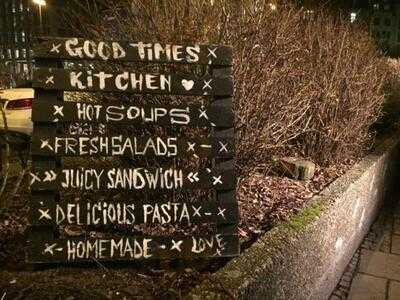 × GOOD TIMES ×
× KITCHEN ♥ ×
× HOT SOUPS ×
× FRESH SALADS × - ×
» × JUICY SANDWICH « ×
× DELICIOUS PASTA × - ×
× - HOMEMADE - × LOVE